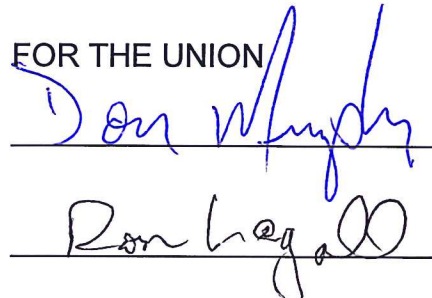 FOR THE UNION
Don Murphy
Ron Legall